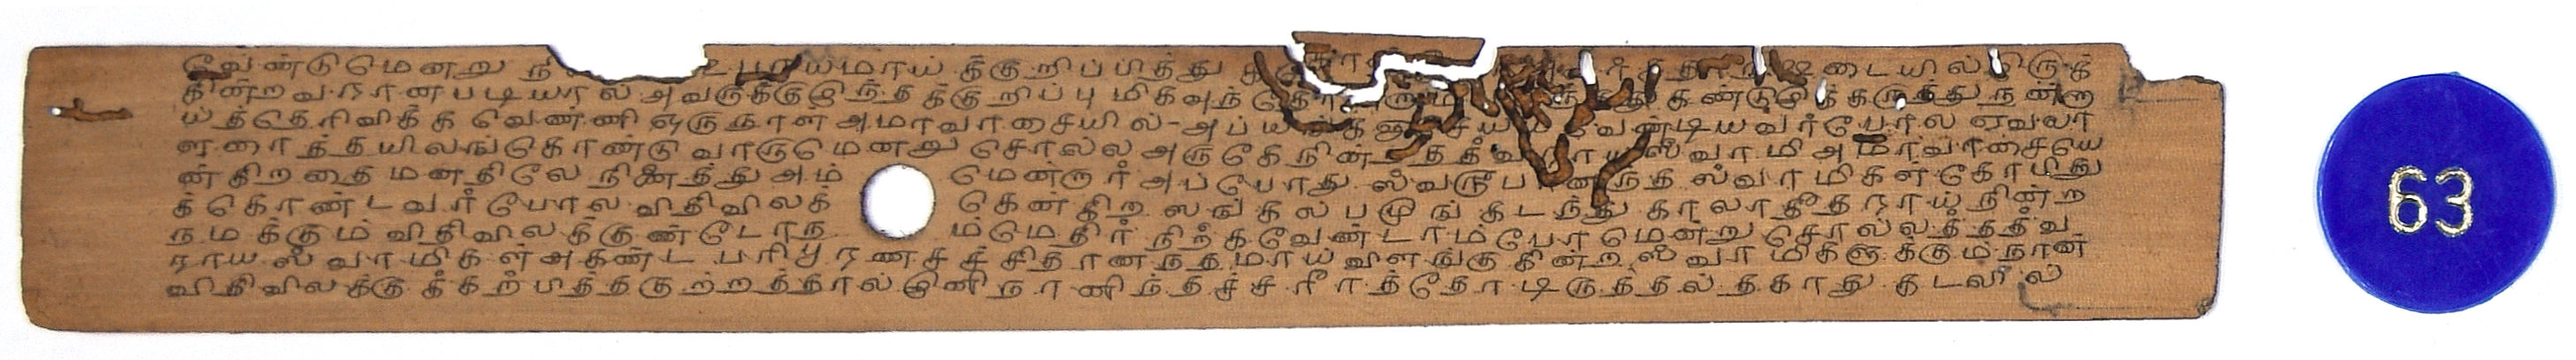 வேண்டுமெனறு உபாயமாய் க்குறிப்பித்து டையிலிருக்
கின்றவ நானபடியால் அவருக்குமிந்தக்குறிப்பு மிகவுந் கண்டுமிக்கருத்து நன்றா
ய்த்தெரிவிக்க வேண்ணி ஒருநாள் அமாவாசையில்-அப்ய வேண்டியவர்போல ஏவலா
ளரைத்தயிலங்கொண்டு வாருமெனறு சொல்ல அருகே நின்ற தத்வராயஸ்வாமி அமாவாசையெ
ன்கிறதை மனதிலே நினைத்து அம் மென்றார் அப்போது ஸ்வரூபானந்த ஸ்வாமிகள் கோபித்து
க்கொண்டவர்போல விதிவிலக் கென்கிற ஸங்கல்பமுங் கடந்து காலாதீதராய் நின்ற
நமக்கும் விதிவிலக்குண்டோந ம்மெதிர் நிற்கவேண்டாம்போமென்று சொல்லத்தத்வ
ராய ஸ்வாமிகள் அகண்ட பரிபூரணசச்சிதானந்தமாய் விளங்குகின்ற ஸ்வாமிகளுக்கும் நான்
விதிவிலக்கு கற்பித்தகுற்றத்தால் இனி நானிந்தச்சரீரத்தோடிருத்தல் தகாது கடலில்
63